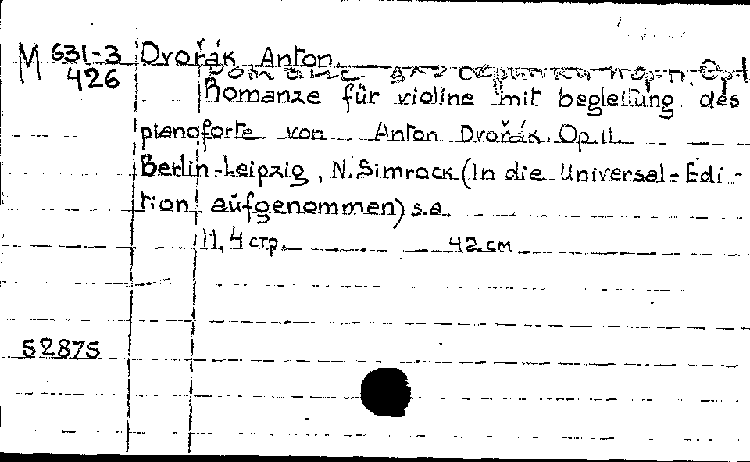 M 631-3 Dvořák Anton.
426
Romanze für violine mit begleitung des
pianoforte von Anton Dvořák. Op. 11.
Berlin-Leipzig, N. Simrock (In die Universal-Edi-
tion aufgenommen) s.a.
11, 4 стр. 42 см
52875